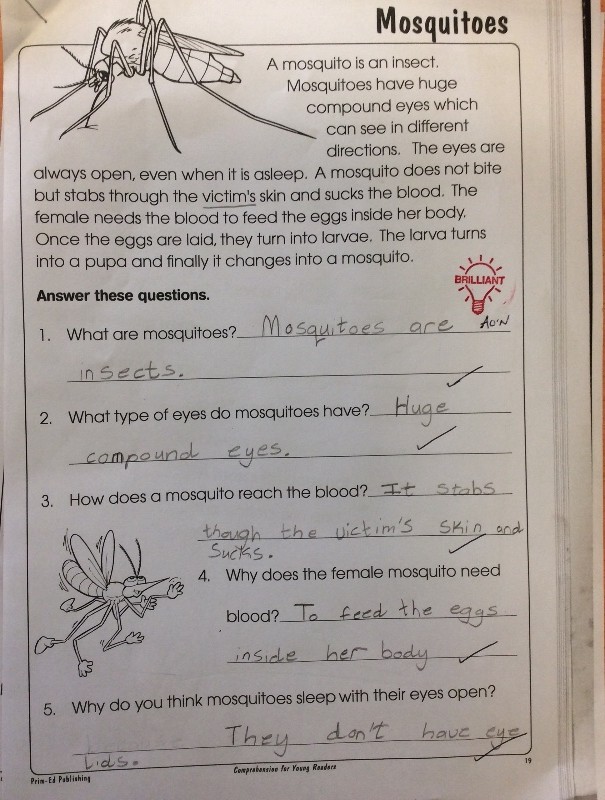 Mosquitoes
A mosquito is an insect.
Mosquitoes have huge
compound eyes which
can see in different
directions. The eyes are
always open, even when it is asleep. A mosquito does not bite
but stabs through the victim's skin and sucks the blood. The
female needs the blood to feed the eggs inside her body.
Once the eggs are laid, they turn into larvae. The larva turns
into a pupa and finally it changes into a mosquito.
BRILLIANT
Answer these questions.
1. What are mosquitoes? Mosquitoes are
insects.
2. What type of eyes do mosquitoes have? Huge
compound eyes.
3. How does a mosquito reach the blood? It stabs
though the victim's skin and
sucks.
4. Why does the female mosquito need
blood? To feed the eggs
inside her body
5. Why do you think mosquitoes sleep with their eyes open?
They don't have eye
Lids.
Prim-Ed Publishing
Comprehension for Young Readers
19